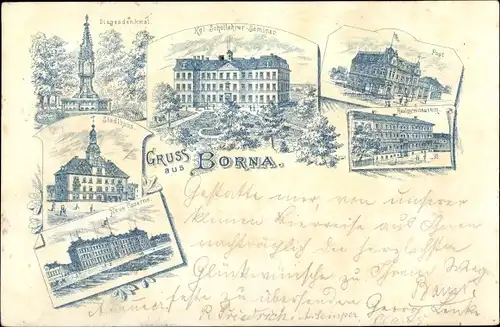 Siegesdenkmal.
Kgl. Schullehrer-Seminar.
Post
Stadthaus
Realgymnasium
GRUSS
aus
BORNA.
Neue Caserne.
Gestatte mer, von unserer
kleinen Bierreise aus Ihnen
nachträglich die herzlichsten
Glückwünsche zu Ihrem
feste zu übersenden Georg
P. Friedrich.